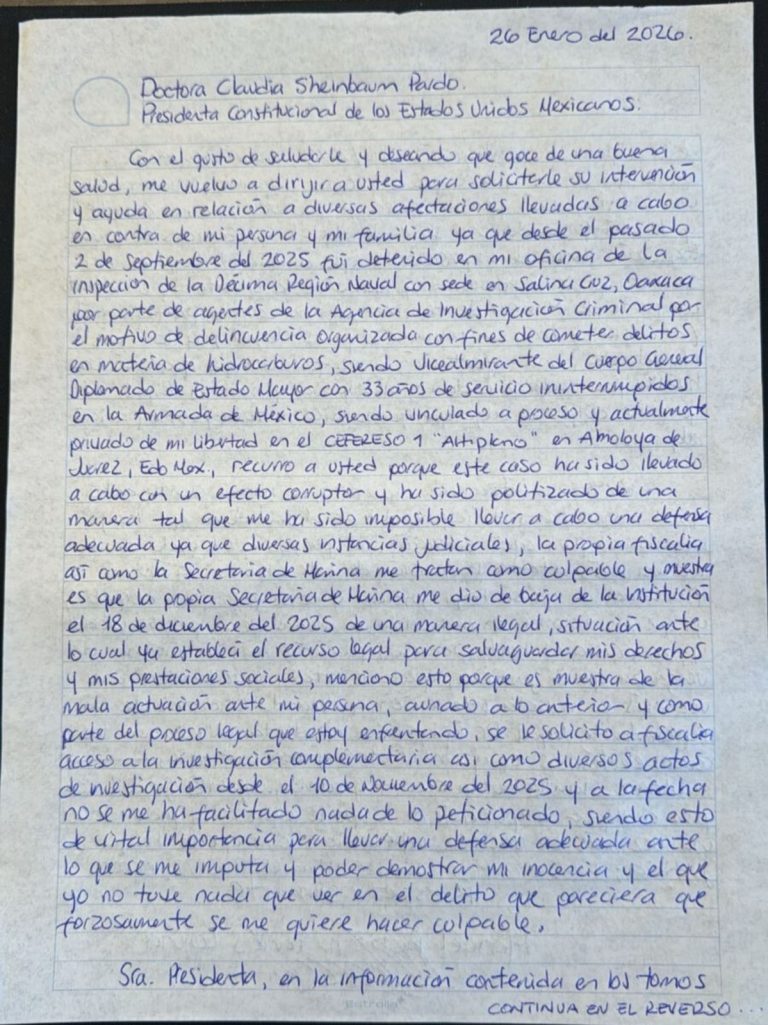 26 Enero del 2026.
Doctora Claudia Sheinbaum Pardo.
Presidenta Constitucional de los Estados Unidos Mexicanos.
Con el gusto de saludarle y deseando que goce de una buena
salud, me vuelvo a dirijir a usted para solicitarle su intervención
y ayuda en relación a diversas afectaciones llevadas a cabo
en contra de mi persona y mi familia ya que desde el pasado
2 de septiembre del 2025 fui detenido en mi oficina de la
inspección de la Décima Región Naval con sede en Salina Cruz, Oaxaca
por parte de agentes de la Agencia de Investigación Criminal por
el motivo de delincuencia organizada con fines de cometer delitos
en materia de hidrocarburos, siendo Vicealmirante del Cuerpo General
Diplomado de Estado Mayor con 33 años de servicio ininterrumpidos
en la Armada de México, siendo vinculado a proceso y actualmente
privado de mi libertad en el CEFERESO 1 "Altiplano" en Almoloya de
Juarez, Edo Mex, recurro a usted porque este caso ha sido llevado
a cabo con un efecto corruptor y ha sido politizado de una
manera tal que me ha sido imposible llevar a cabo una defensa
adecuada ya que diversas instancias judiciales, la propia fiscalia
así como la Secretaria de Marina me tratan como culpable y muestra
es que la popia Secretaria de Marina me dio de baja de la Institución
el 18 de diciembre del 2025 de una manera ilegal, situación ante
lo cual ya establecí el recurso legal para salvaguardar mis derechos
y mis prestaciones sociales, menciono esto porque es muestra de la
mala actuación ante mi persona, aunado a lo anterior y como
parte del proceso legal que estoy enfrentando, se le solicito a fiscalia
acceso a la investigación complementaria asi como diversos actos
de investigación desde el 10 de Noviembre del 2025 y a la fecha
no se me ha facilitado nada de lo peticionado, siendo esto
de vital importancia para llevar una defensa adecuada ante
lo que se me imputa y poder demostrar mi inocencia y el que
yo no tuve nada que ver en el delito que pareciera que
forzosamente se me quiere hacer culpable.
Sra. Presidenta, en la información contenida en los tomos
CONTINUA EN EL REVERSO ...